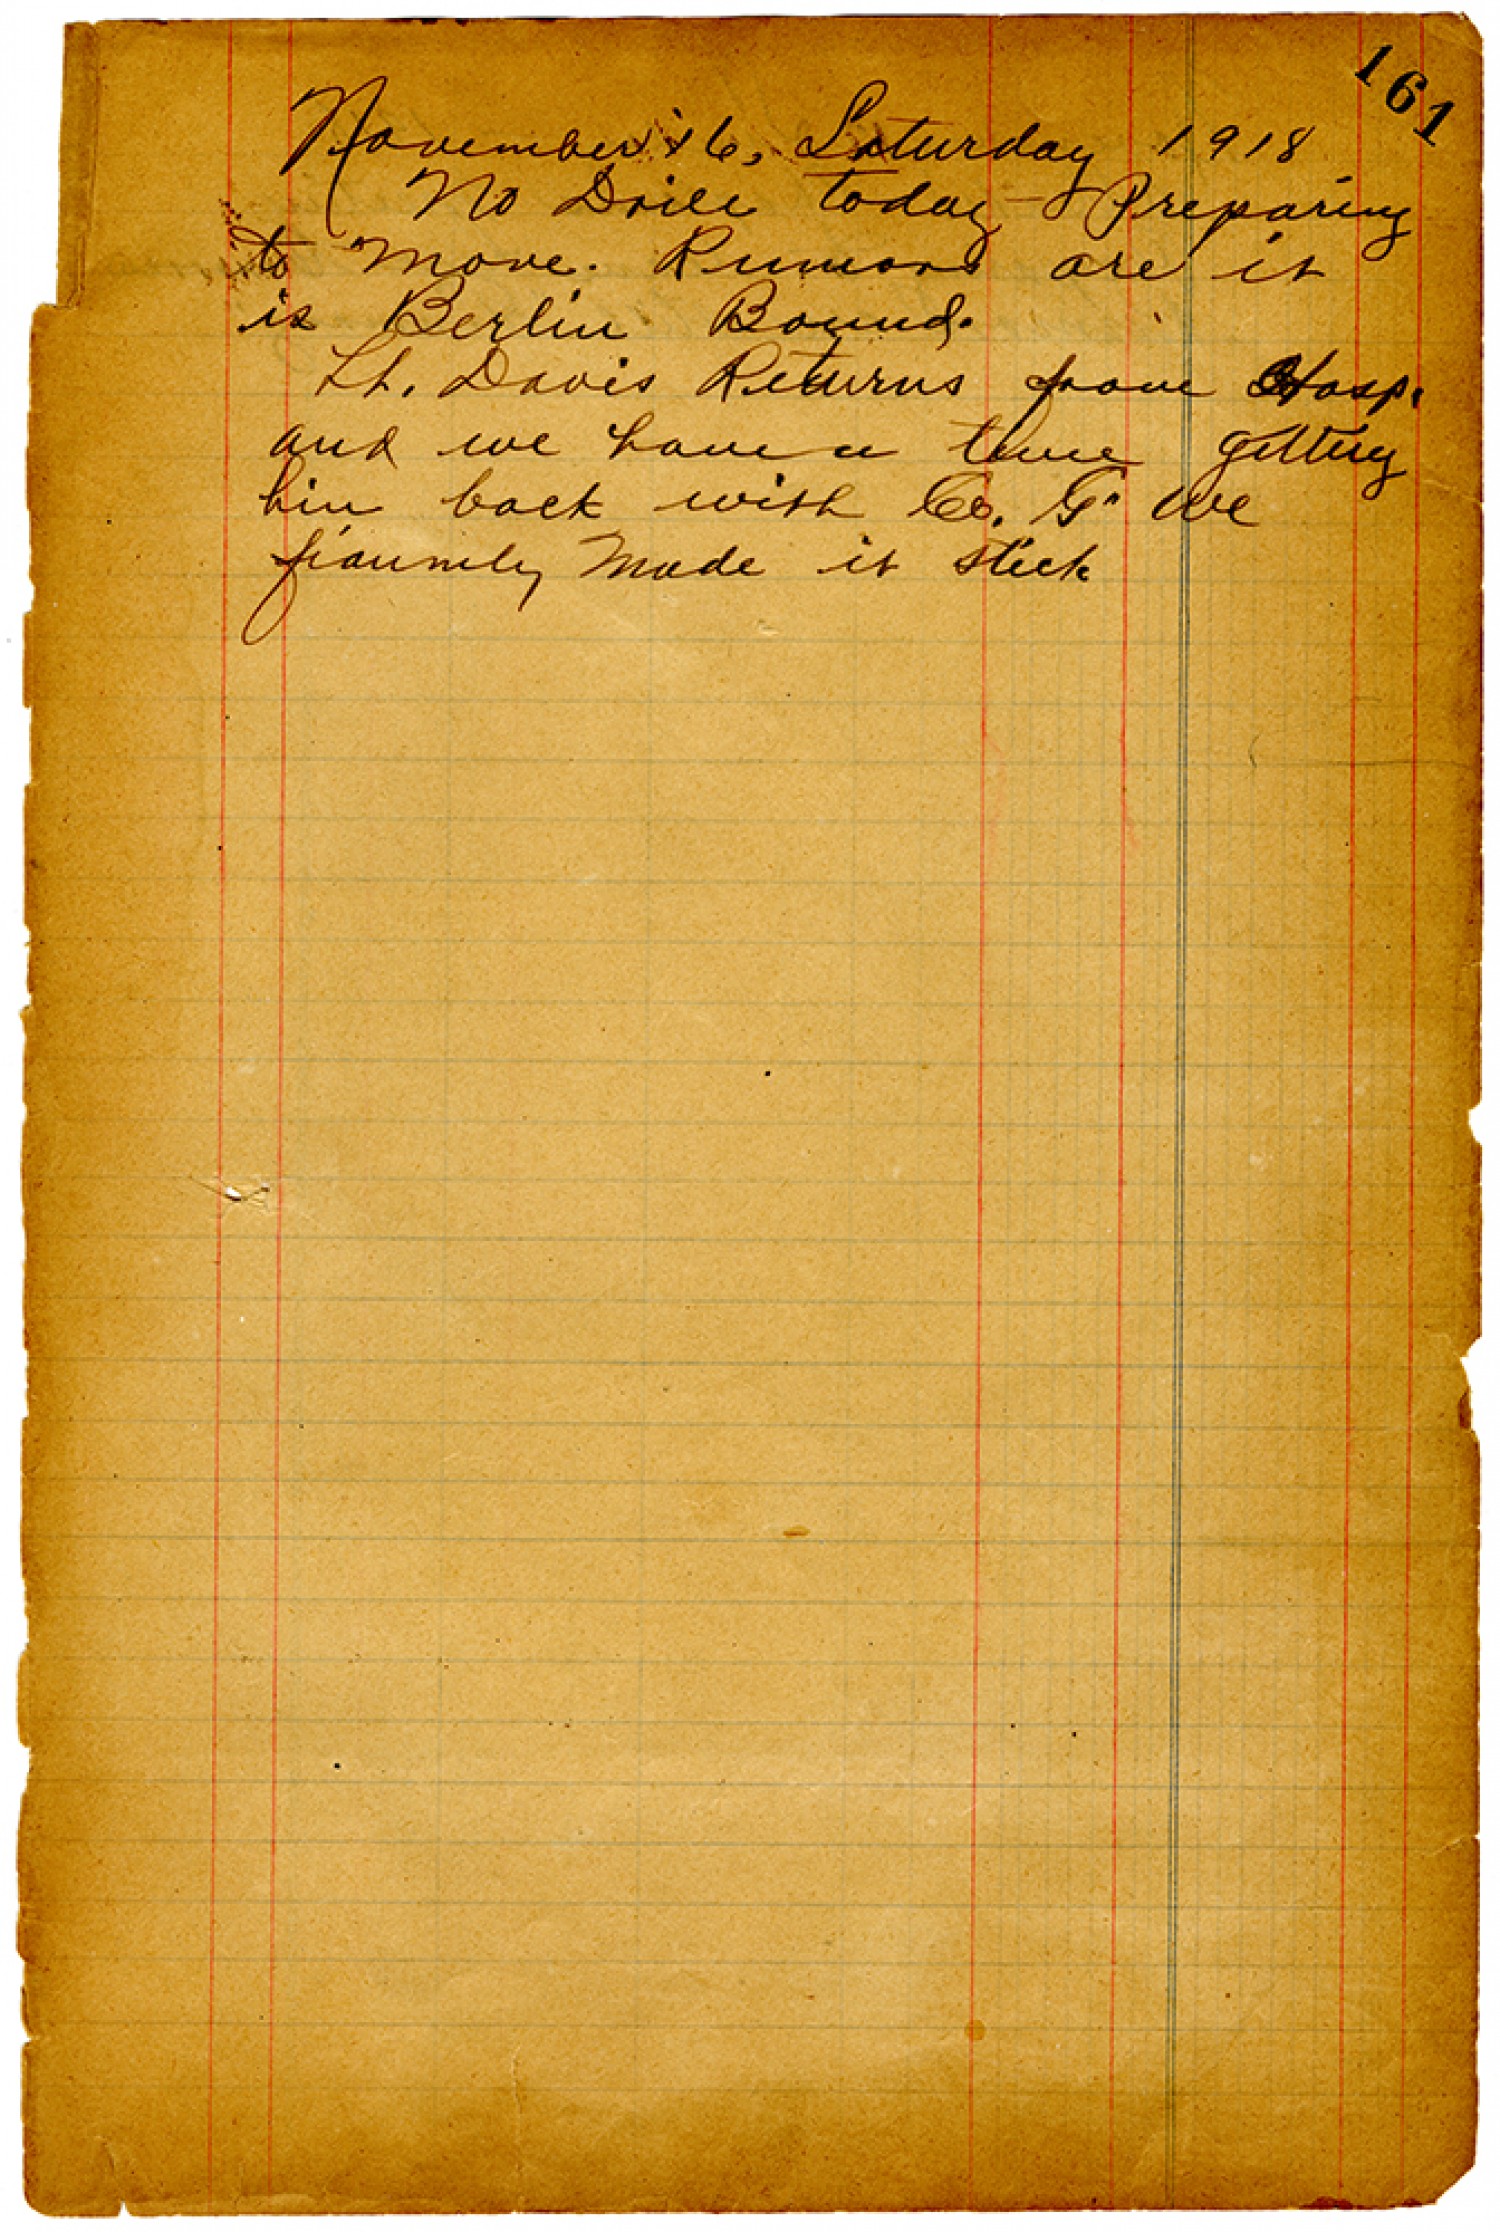 161
November 16, Saturday 1918
No Drill today - Preparing
to move. Rumors are it
is Berlin Bound.
Lt. Davis Returns from Hosp.
and we have a time getting
him back with Co. "G" We
made it stick